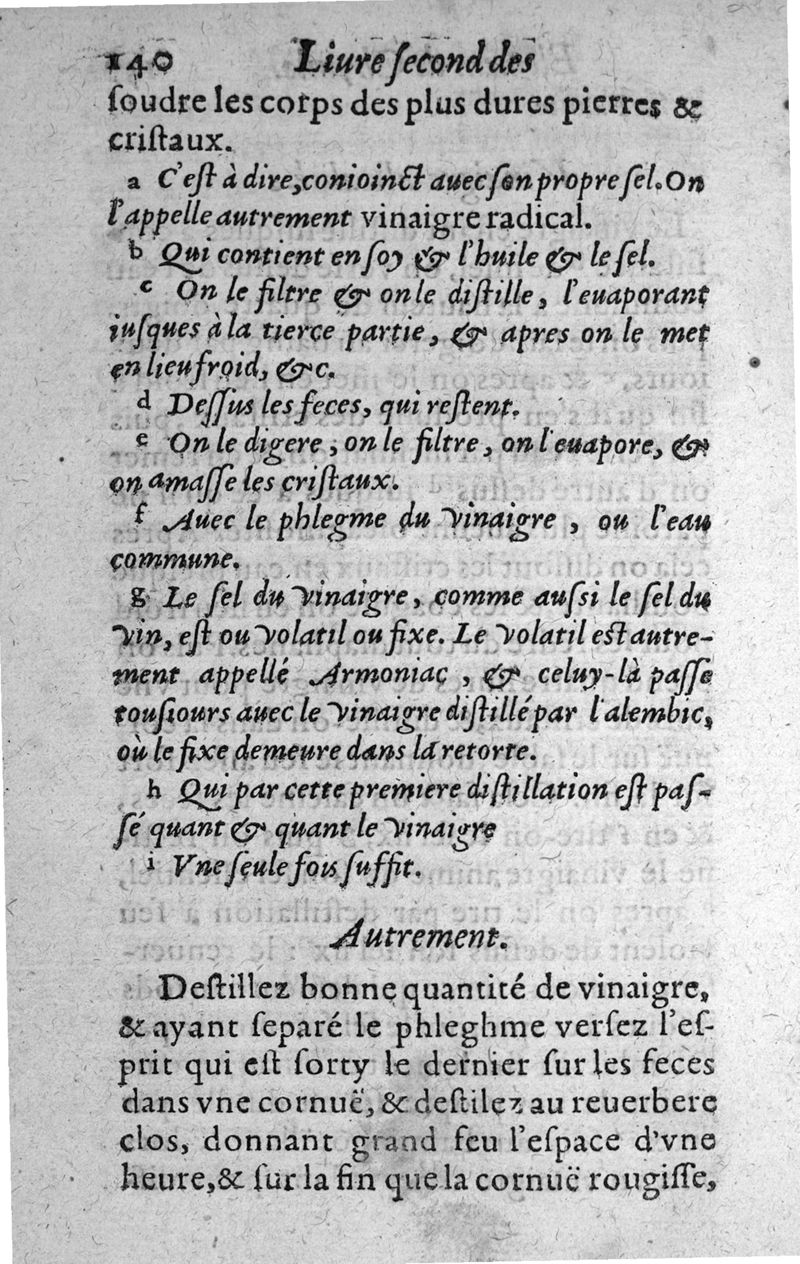 140 Liure ſecond des
ſoudre les corps des plus dures pierres &
criſtaux.
a C'eſt à dire, conioinct auec ſon propre ſel. On
l'appelle autrement vinaigre radical.
b Qui contient en ſoy & l'huile & le ſel.
c On le filtre & on le diſtille, l'euaporant
iuſques à la tierce partie, & apres on le met
en lieu froid, &c.
d Deſſus les feces, qui reſtent.
e On le digere, on le filtre, on l'euapore, &
on amaſſe les criſtaux.
f Auec le phlegme du vinaigre, ou l'eau
commune.
g Le ſel du vinaigre, comme auſsi le ſel du
vin, eſt ou volatil ou fixe. Le volatil est autre-
ment appellé Armoniac, & celuy-là paſſe
touſiours auec le vinaigre diſtillé par l'alembic,
où le fixe demeure dans la retorte.
h Qui par cette premiere diſtillation eſt paſ-
ſé quant & quant le vinaigre
i Vne ſeule fois ſuffit.
Autrement.
Deſtillez bonne quantité de vinaigre,
& ayant ſeparé le phleghme verſez l'eſ-
prit qui eſt ſorty le dernier ſur les feces
dans vne cornuë, & deſtilez au reuerbere
clos, donnant grand feu l'eſpace d'vne
heure, & ſur la fin que la cornuë rougiſſe,